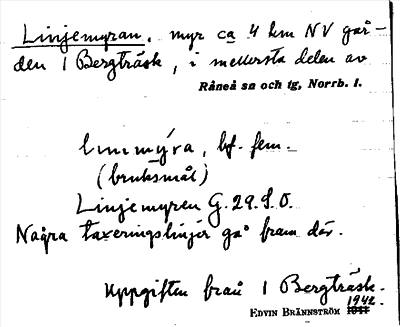 Linjemyran, myr ca 4 km NV går-
den 1 Bergträsk, i mellersta delen av
Råneå sn och tg, Norrb. l.
linmýra, bf. fem.
(bruksmål)
Linjemyren G. 29. S. O.
Några taxeringslinjer gå fram där.
Uppgiften från 1 Bergträsk.
1942.
EDVIN BRÄNNSTRÖM 1941